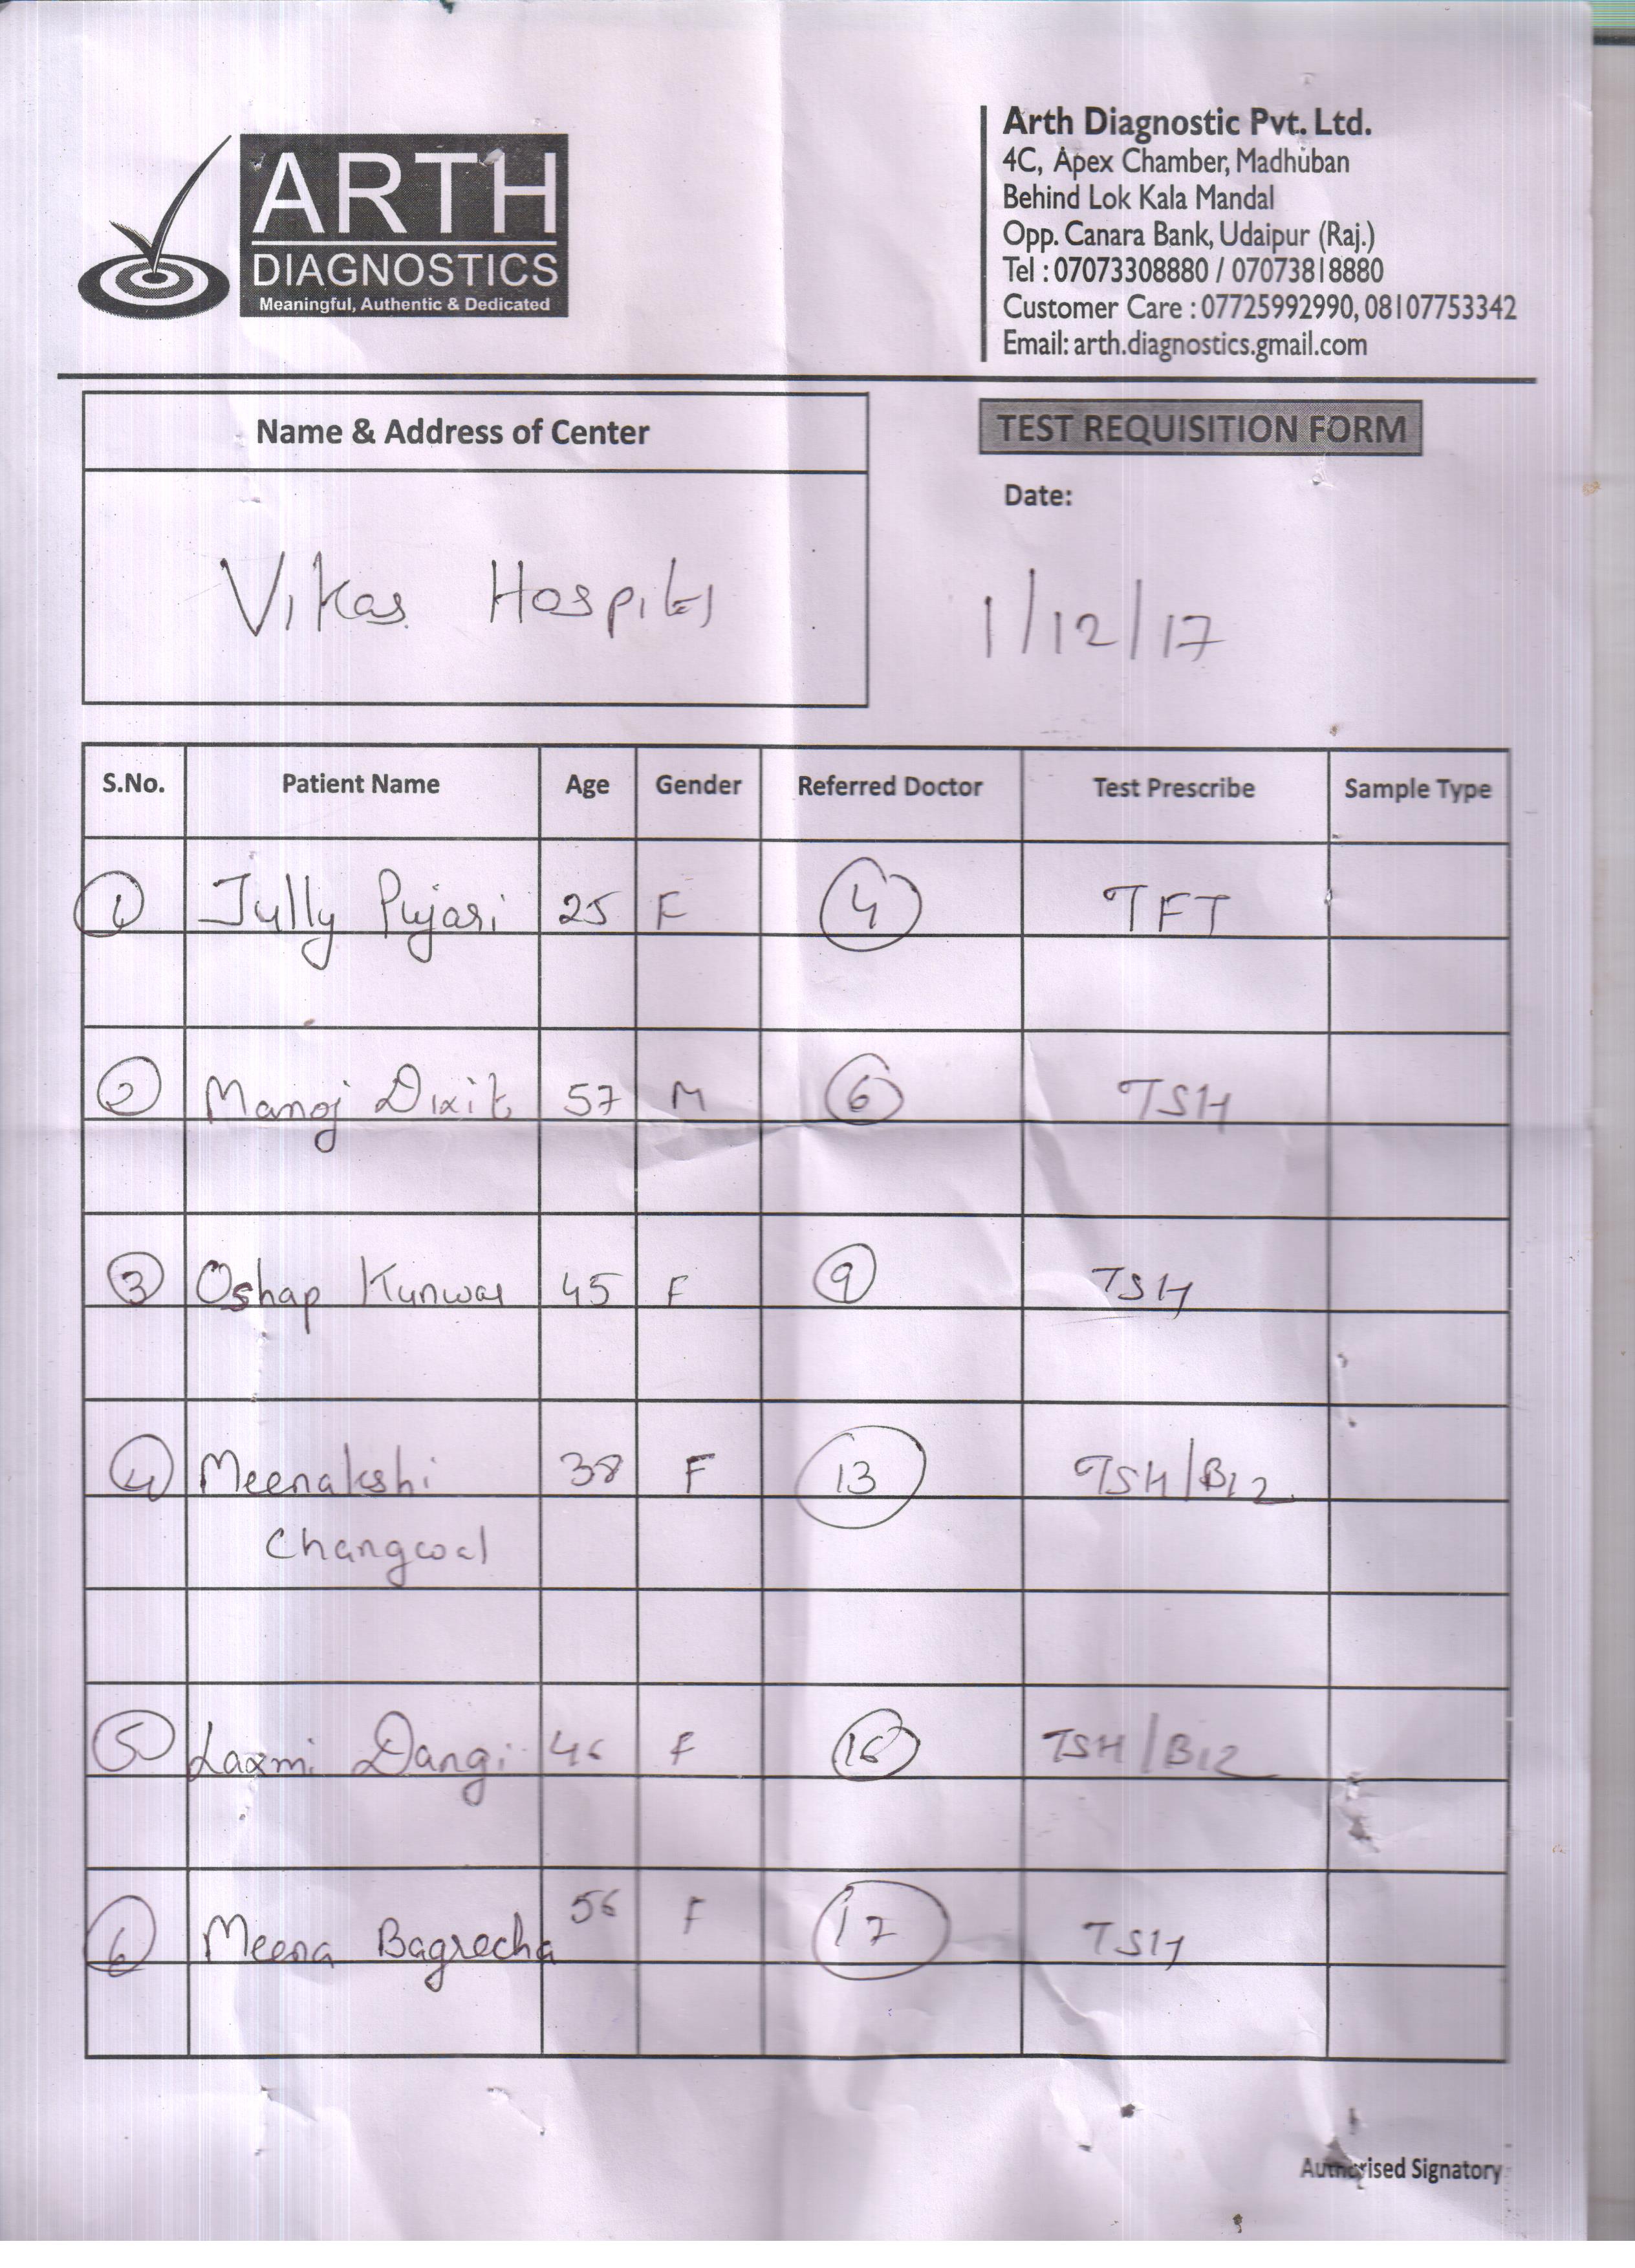 ARTH
DIAGNOSTICS
Meaningful, Authentic & Dedicated
Arth Diagnostic Pvt. Ltd.
4C, Apex Chamber, Madhuban
Behind Lok Kala Mandal
Opp. Canara Bank, Udaipur (Raj.)
Tel : 07073308880 / 07073818880
Customer Care : 07725992990, 08107753342
Email: arth.diagnostics.gmail.com
Name & Address of Center
TEST REQUISITION FORM
Date:
Vikas Hospital
1/12/17
S.No. Patient Name Age Gender Referred Doctor Test Prescribe Sample Type
1 Jully Pujari 25 F 4 TFT
2 Manoj Dixit 57 M 6 TSH
3 Oshap Kunwar 45 F 9 TSH
4 Meenakshi 38 F 13 TSH/B12
Changwal
5 Laxmi Dangi 46 F 16 TSH/B12
6 Meena Bagrecha 56 F 17 TSH
Authorised Signatory